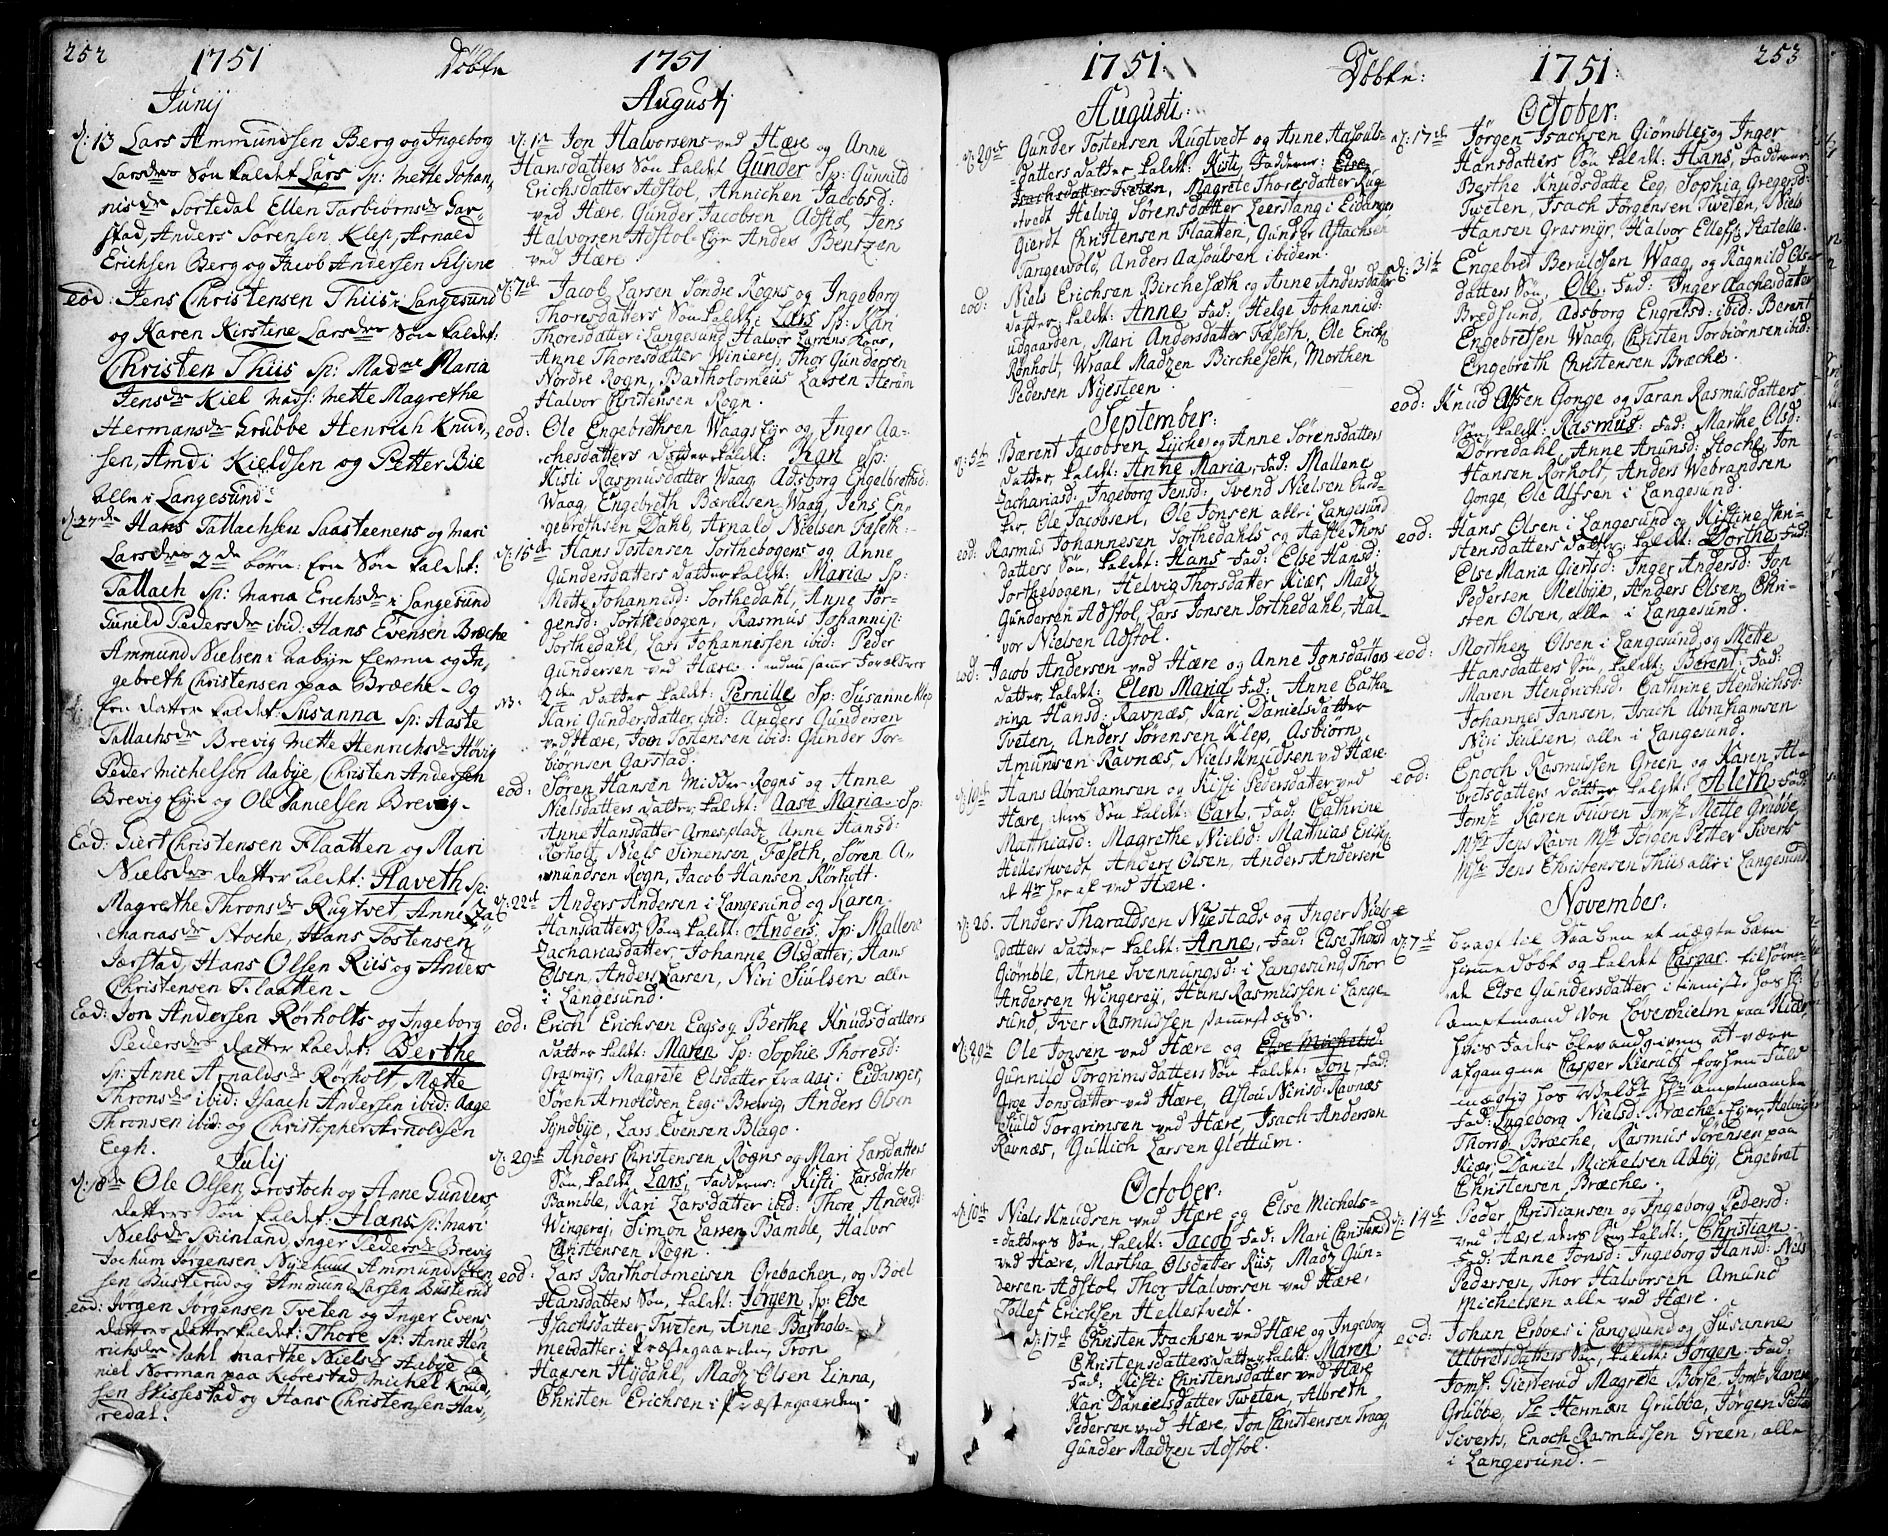 252
1751
Döbte
1751
Junij
d: 13 Lars Ammundsen Berg og Ingeborg
Larsdrs Søn kaldet Lars Sp: Mette Johan-
nisdr Sortedal Ellen Tarbiørnsdr Gar-
stad, Anders Sørensen Klep, Arnald
Erichsen Berg og Jacob Andersen Siljene
eod: Jens Christensen Thüs i Langesund
og Karen Kirstine Larsdrs Søn kaldet:
Christen Thüs Sp: Madme Maria
Jensdr Kiel Mads: Mette Magrethe
Hermansdr Grubbe Henrich Knud-
sen, Amdi Kieldsen og Petter Bie
alle i Langesund
d: 27de Hans Tallachsen Saasteenens og Mari
Larsdrs 2de børn: Een Søn kaldet:
Tallach Sp: Maria Erichsdr i Langesund
Gunild Pedersdr ibid: Hans Evensen Bræche
Ammund Nielsen i Aabye Elven og In-
gebreth Christensen paa Bræche - Og
Een datter kaldet: Susanna Sp: Aaste
Tallachsdr Brevig Mette Henrichsdr Høvig
Peder Michelsen Aabye, Christen Andersen
Brevig Eje og Ole Danielsen Brevig
Eod: Giert Christensen Flaatten og Mari
Nielsdrs datter kaldet: Haveth Sp:
Magrethe Thronsdr Rugtvet, Anne Za-
chariasdr Stoche, Hans Tostensen
Jarstad, Hans Olsen Riis og Anders
Christensen Flaatten
Eod: Jon Andersen Rørholts og Ingeborg
Pedersdrs datter kaldet: Berthe
Sp: Anne Arnaldsdr Rørholt Mætte
Thronsdr ibid: Isaach Andersen ibid: Aage
Thronsen ibid: og Christopher Arnoldsen
Eegh.
Julij
d: 18de Ole Olsen Grostoch og Anne Gunders
datters Søn kaldet: Hans Sp: Mari
Nielsdr Biinland, Inger Pedersdr Brevig
Jochum Jørgensen Nyehuus Ammund Søren
sen Busterud og Ammund Larsen Busterud
eod: Jørgen Jørgensen Tveten og Inger Evens
datters datter kaldet: Thore Sp: Anne Hen
richsdr Dahl Marthe Nielsdr Aabye Da
niel Norman paa Kiørestad Michel Knud
sen Skissestad og Hans Christensen Haf-
redal.
Augustj
d: 1st Jon Halvorsens ved Hære og Anne
Hansdatters Søn kaldet Gunder Sp: Gunnild
Erichsdatter Adstol, Annichen Jacobsd:
ved Hære, Gunder Jacobsen Adstol, Jens
Halvorsen Adstol-Eje Anders Bentzen
ved Hære
d: 7de Jacob Larsen Søndre Rogns og Ingeborg
Thoresdatters Søn kaldet: Lars Sp: Mari
Thoresdatter i Langesund, Halvor Larsens Kone,
Anne Thoresdatter Winierej, Thor Gundersen
Nordre Rogn, Bartholomeus Larsen Herum
Halvor Christensen Rogn.
eod: Ole Engebrethsen Waags Eje og Inger Aa-
chesdatters datter kaldet: Kari Sp:
Kisti Rasmusdatter Waag, Adsborg Engelbrethsd:
Waag, Engebreth Bærelsen Waag, Jens En-
gebrethsen Dahl, Arnald Nielsen Faseth.
d: 15de Hans Tostensen Sorthebogens og Anne
Gundersdatters datter kaldet: Maria Sp:
Mette Johannesd: Sorthedahl, Anne Jør-
gensd: Sorthebogen, Rasmus Johannisf:
Sorthedahl, Lars Johannessen ibid: Peder
Gundersen ved Hære. endnu samme Foreldres
N3: 2den datter kaldet: Pernille Sp: Susanne Klep
Kari Gundersdatter ibid: Anders Gundersen
ved Hære, Jon Tostensen ibid: Gunder Tor-
biørnsen Garstad.
eod: Søren Hansen Midder-Rogns og Anne
Nielsdatters datter kaldet: Aase Maria. Sp:
Anne Hansdatter Arnespladz Anne Hansd:
Rørholt, Niels Simensen Fæseth, Søren A-
mundsen Rogn, Jacob Hansen Rørholt.
d: 22de Anders Andersen i Langesund og Karen
Hansdatters Søn kaldet: Anders, Sp: Mallene
Zachariasdatter Johanne Olsdatter, Hans
Olsen, Anders Larsen, Niri Siulsen alle
i Langesund.
eod: Erich Erichsen Eegs og Berthe Knudsdatters
datter kaldet: Maren Sp: Sophie Thoresd:
Grasmyr, Magrete Olsdatter fra Aas i Eidanger,
Søren Arnoldsen Eeg: Brevig, Anders Olsen
Synbye, Lars Evensen Blago.
d: 29de Anders Christensen Rogns og Mari Larsdatters
Søn, kaldet Lars, Fadderne: Kisti Larsdatter
Bamble, Kari Larsdatter ibid: Thore Andersd:
Wingerej, Simon Larsen Bamble, Halvor
Christensen Rogn.
eod: Lars Bartholomeisen Orebachen, og Boel
Hansdatters Søn, kaldet: Jørgen Sp: Else
Isachsdatter Tweten, Anne Bartholo-
meidatter i Præstegaarden, Tron
Hansen Hydahl, Madz Olsen Linna,
Christen Erichsen i Præstegaarden.
1751.
Döbte:
1751.
253
Augusti.
d: 29de Gunder Tostensen Rugtvedt og Anne Aasouls-
datters datter kaldt: Kisti, Fadderne: Else
Isachsdatter Tveten, Magrete Thoresdatter Rug
tvedt Helvig Sørensdatter Leerstang i Eidanger
Gierdt Christensen Flaatten, Gunder Astachsen
Tangevold, Anders Aasoulsen ibidem.
eod: Niels Erichsen Bircheseth og Anne Andersdatters
datter kaldt: Anne Fad: Helge Johannisd:
udgaarden, Mari Andersdatter Fæseth, Ole Erichs:
Rønholt, Wraal Madzen Bircheseth, Morthen
Pedersen Nyesteen.
September:
d: 5te Bærent Jacobsen Lyche og Anne Sørensdatters
datter, kaldt: Anne Maria, Fad: Mallene
Zachariasd: Ingeborg Jensd: Svend Nielsen Gurd-
ker, Ole Jacobsen, Ole Jonsen alle i Langesund
eod: Rasmus Johannesen Sorthedahls og Aaste Thors
datters Søn, kaldt: Hans Fad: Else Hansd:
Sorthebogen, Helvig Thorsdatter Kiær, Madz
Gundersen Adstol, Lars Jonsen Sorthedahl, Hal-
vor Nielsen Adstol.
eod: Jacob Andersen ved Hære og Anne Jonsdatters
datter, kaldt: Elen Maria Fad: Anne Catha-
rina Hansd: Ravnæs, Kari Danielsdatter
Tveten, Anders Sørensen Klep, Asbiørn
Amundsen Ravnæs, Niels Knudsen ved Hære.
d: 19de Hans Abrahamsen og Kisti Pedersdatter ved
Hære, deres Søn kaldt: Carl, Fad: Cathrine
Mathiasd: Magrethe Nielsd: Matthias Erichs:
Hellestvedt Anders Olsen, Anders Andersen
de 4re her af ved Hære.
d: 26. Anders Tharaldsen Nyestads og Inger Niels-
datters datter kaldt: Anne, Fad: Else Thorsd
Giømble, Anne Svennungsd: i Langesund, Thor
Andersen Wingerej, Hans Rasmussen i Lange-
sund, Iver Rasmussen sammestæds.
d: 29de Ole Jonsen ved Hære og Else Michelsd:
Gunnild Torgrimsdatters Søn kaldt: Jon Fad:
Inge Jonsdatter ved Hære, Aslou Nirisd: Ravnæs
Siuld Torgrimsen ved Hære, Isach Andersen
Ravnæs, Gullich Larsen Glettum.
October:
d: 10de Niels Knudsen ved Hære og Else Michels-
datters Søn, kaldt: Jacob Fad: Mari Christensd
ved Hære, Martha Olsdatter Riis, Madz Gun-
dersen Adstol, Thor Halvorsen ved Hære,
Tollef Erichsen Hellestvedt.
d: 17de Christen Isachsen ved Hære og Ingeborg
Christensdatters datter kaldt: Maren
Fad: Kisti Christensdatter ved Hære
Kari Danielsdatter Tweten, Albreth
Pedersen ved Hære, Jon Christensen Traag
Gunder Madzen Adstol.
October.
d: 17de Jørgen Isachsen Giømbles og Inger
Hansdatters Søn kaldt: Hans, Faddrene:
Berthe Knudsdatte Eeg, Sophia Gregersd:
Tweten, Isach Jørgensen Tweten, Niels
Hansen Grasmyr, Halvor Ellefs: Statelle.
d: 31te Engebret Beruldsen Waag, og Ragnild Ols
datters Søn, Ole: Fad: Inger Aachesdatter
Bredsund, Adsborg Engretsd: ibid: Berent
Engebretsen Waag, Christen Torbiørnsen ibid:
Engebreth Christensen Bræche.
eod: Knud Alfsen Gonge og Taran Rasmusdatters
Søn kaldt: Rasmus. Fad: Marthe Olsd:
Dørredahl, Anne Anundsd: Stoche, Jon
Hansen Rørholt, Anders Webrandsen
Gonge, Ole Alfsen i Langesund.
eod: Hans Olsen i Langesund og Kistine Chri-
stensdatters datter kaldt: Dorthe Fad:
Else Maria Giertsd: Inger Andersd: Jon
Pedersen Melbye, Anders Olsen, Chri-
sten Olsen, alle i Langesund.
eod: Morthen Olsen i Langesund, og Mette
Hansdatters Søn, kaldt: Berent. Fad:
Maren Hendrichsd: Cathrine Hendrichsd:
Johannes Jansen, Isach Abrahamsen
Niri Siulsen, alle i Langesund.
eod: Enoch Rasmussen Green og Karen Al-
bretsdatters datter kaldt: Aleth Fad:
Jomf: Karen Furen Jomf: Mette Grubbe
Mr Jens Ravn Mr Jørgen Petter Siverts
Mr Jens Christensen Thüs alle i Langesund.
November.
d: 7de bragt til Daaben et uægte barn
hiemme døbt og kaldet Caspar. tilhøren-
de Else Gundersdatter i tieniste hos Hr
amptmand Von Løvenhielm paa Kiær,
hvis Fader blev andgiven at være
afgangne Casper Kierulf forhen Fuld-
mægtig hos Welbt Hr amptmanden
Fad: Ingeborg Nielsd: Bræche-Ejer, Helvig
Thorsd: Bræche, Rasmus Sørensen paa
Kiær, Daniel Michelsen Aaby, Engebret
Christensen Bræche.
d: 14de Peder Christiansen og Ingeborg Pedersd:
ved Hære, deres Søn kaldt: Christian.
Fad: Anne Jonsd: Ingeborg Hansd: Niels
Pedersen, Thor Halvorsen Amund
Michelsen alle ved Hære.
eod: Johan Esbves i Langesund og Susanne
Albretsdatters Søn, kaldt: Jørgen. Fad:
Jomf: Gierterud Magrete Børse. Jomf: Karen
Grubbe, Sr Herman Grubbe, Jørgen Petter
Siverts, Enoch Rasmussen Green, alle
i Langesund.